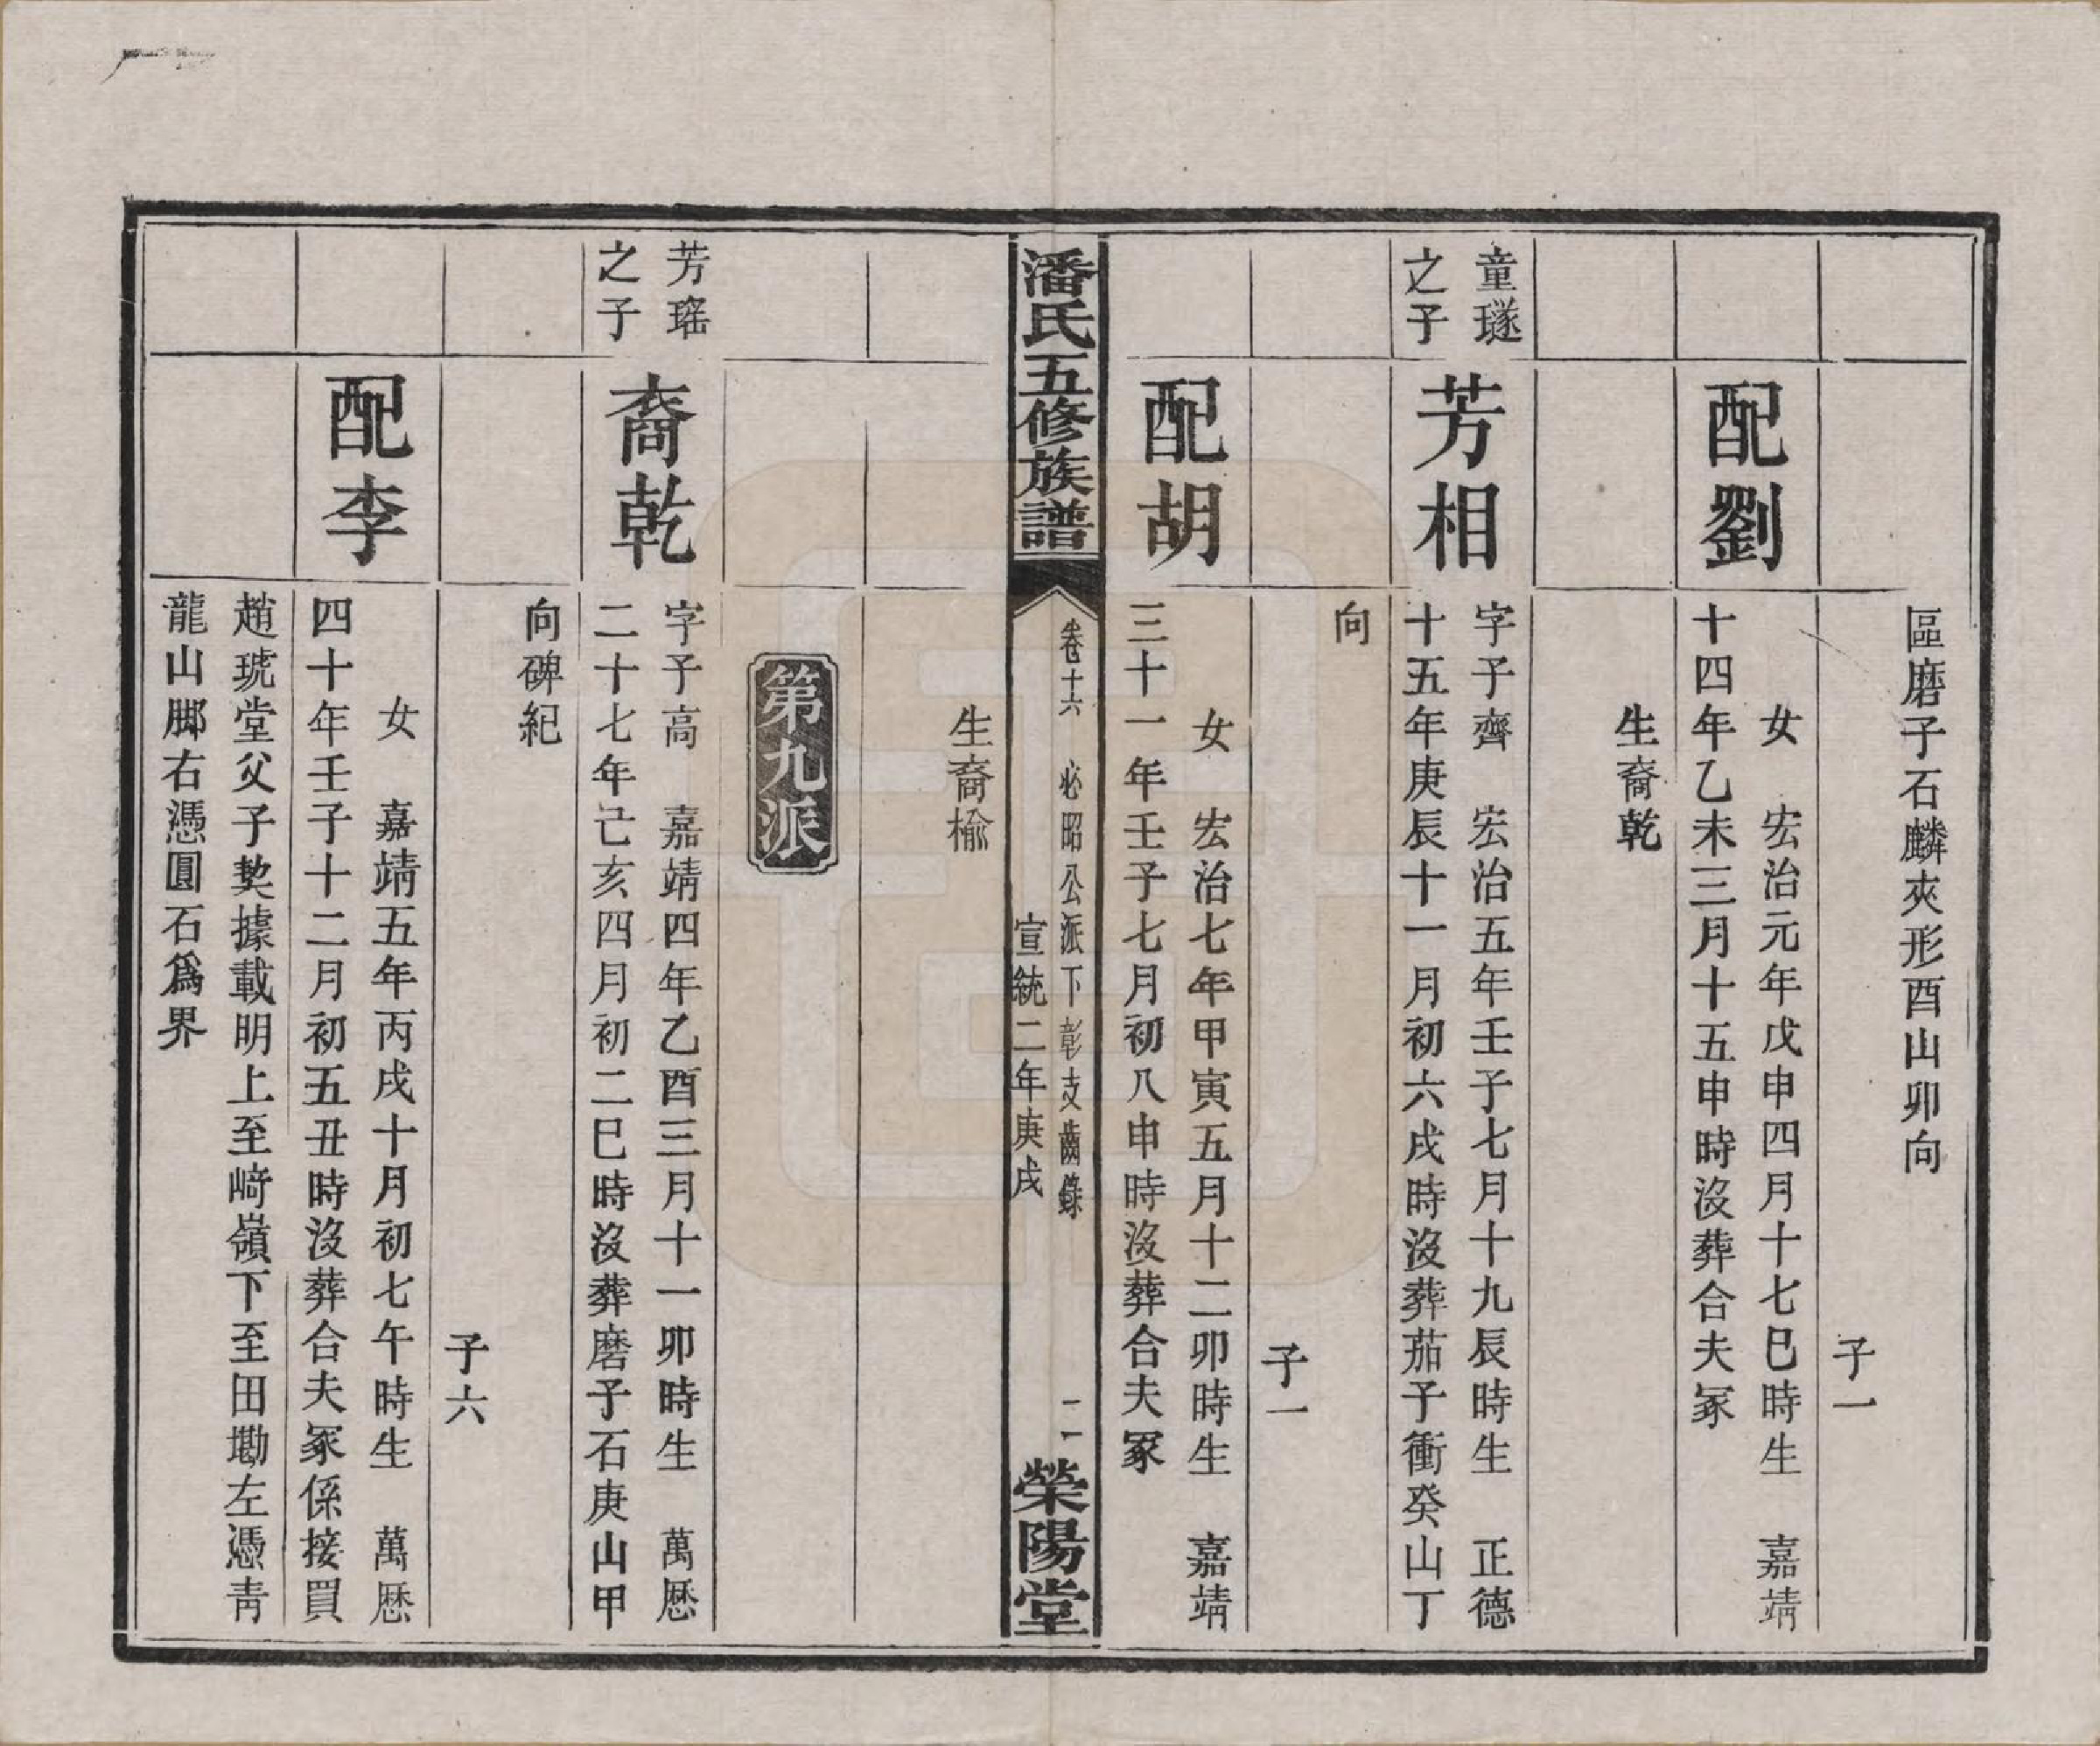 區磨子石麟夾形酉山卯向
子一
配劉
女　宏治元年戊申四月十七巳時生　嘉靖
十四年乙未三月十五申時沒葬合夫冢
生裔乾
童璲
之子
芳相
字子齊　宏治五年壬子七月十九辰時生　正德
十五年庚辰十一月初六戌時沒葬茄子衝癸山丁
向
子一
配胡
女　宏治七年甲寅五月十二卯時生　嘉靖
三十一年壬子七月初八申時沒葬合夫冢
潘氏五修族譜
卷十六　必昭公派下彰支齒錄
二
宣統二年庚戌
榮陽堂
生裔榆
第九派
芳瑤
之子
裔乾
字子高　嘉靖四年乙酉三月十一卯時生　萬歷
二十七年己亥四月初二巳時沒葬磨子石庚山甲
向碑紀
子六
配李
女　嘉靖五年丙戌十月初七午時生　萬歷
四十年壬子十二月初五丑時沒葬合夫冢係接買
趙琥堂父子契據載明上至﨑嶺下至田墈左憑青
龍山脚右憑圓石爲界